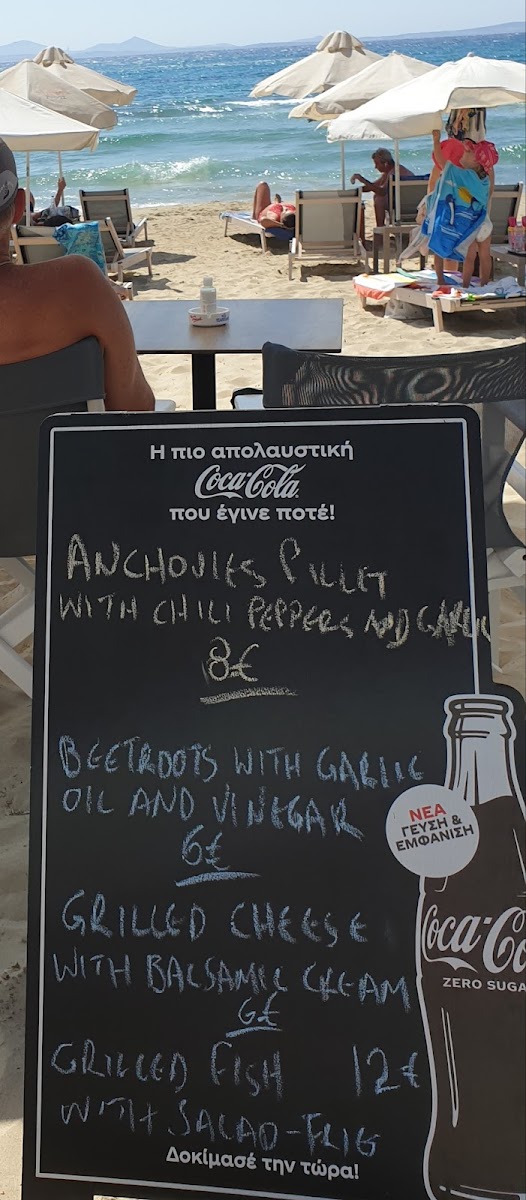 Η πιο απολαυστική
Coca-Cola
που έγινε ποτέ!
ANCHOVIES FILLET
WITH CHILI PEPPERS AND GARLIC
8€
BEETROOTS WITH GARLIC
OIL AND VINEGAR
6€
GRILLED CHEESE
WITH BALSAMIC CREAM
6€
GRILLED FISH 12€
WITH SALAD-FRIG
Δοκίμασέ την τώρα!
ΝΕΑ
ΓΕΥΣΗ &
ΕΜΦΑΝΙΣΗ
Coca-Co
ZERO SUGA